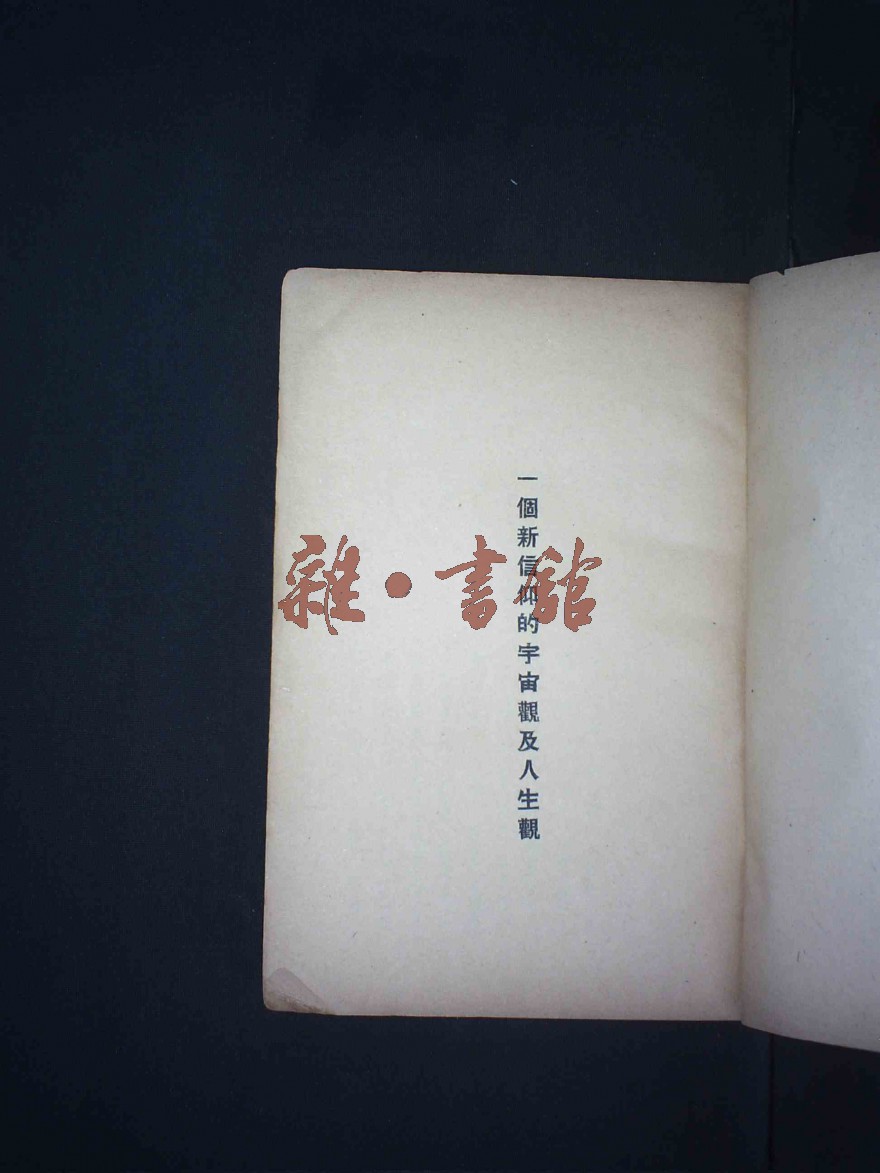 一個新信仰的宇宙觀及人生觀
雜·書館